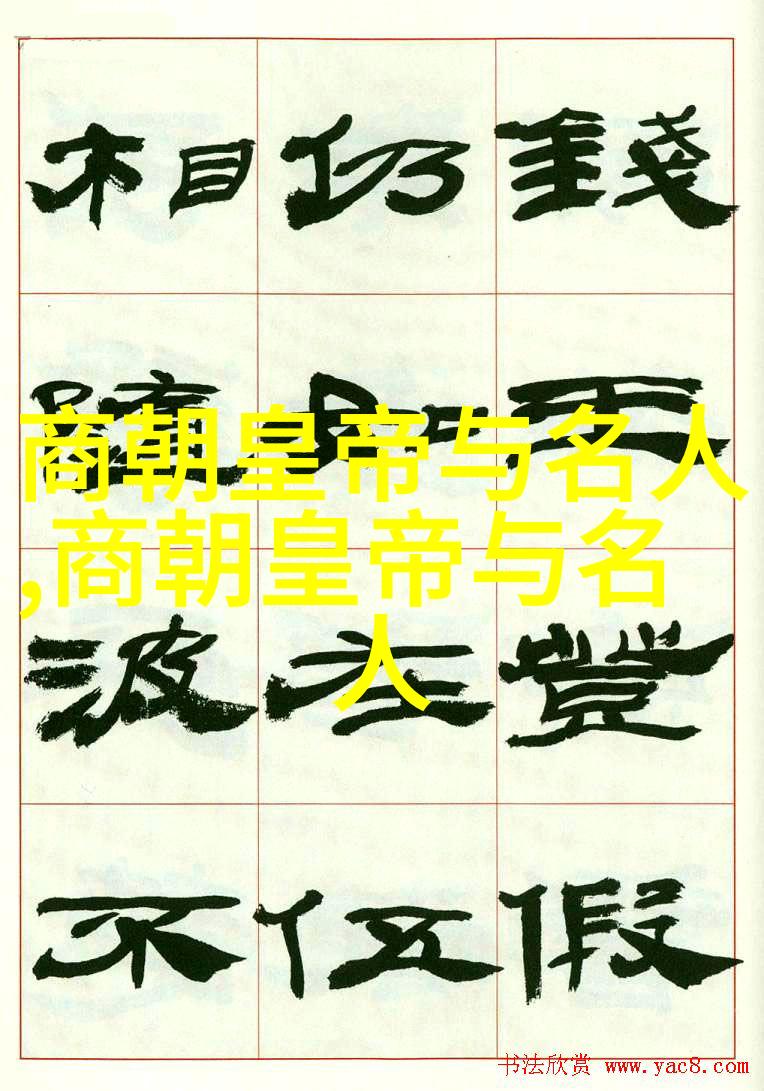 商朝皇帝与名人
,商朝皇帝与名
人
錢王假
仍左伍
相波不
书法欣赏 www.yac8.com